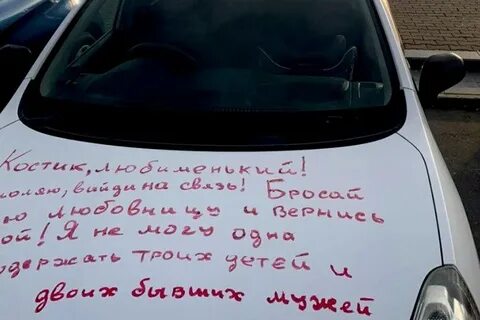 Костик, любименький!
моляю, выйди на связь! Бросай
ю любовницу и вернись
ой! Я не могу одна
одержать троих детей и
двоих бывших мужей